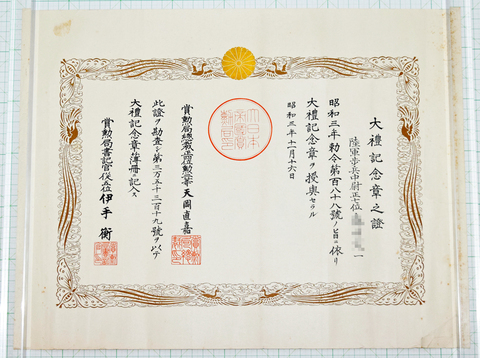 大禮記念章之證
陸軍步兵中尉正八位
一
昭和三年勅令第百八十八號ノ旨ニ依リ
大禮記念章ヲ授與セラル
昭和三年十一月十六日
大日本
帝國賞
勳局印
賞勳局總裁 天岡直嘉
此證ヲ勘査シ第三万五千三百十九號ヲ以テ
大禮記念章簿冊ニ記入ス
賞勳局書記官 伊手衡